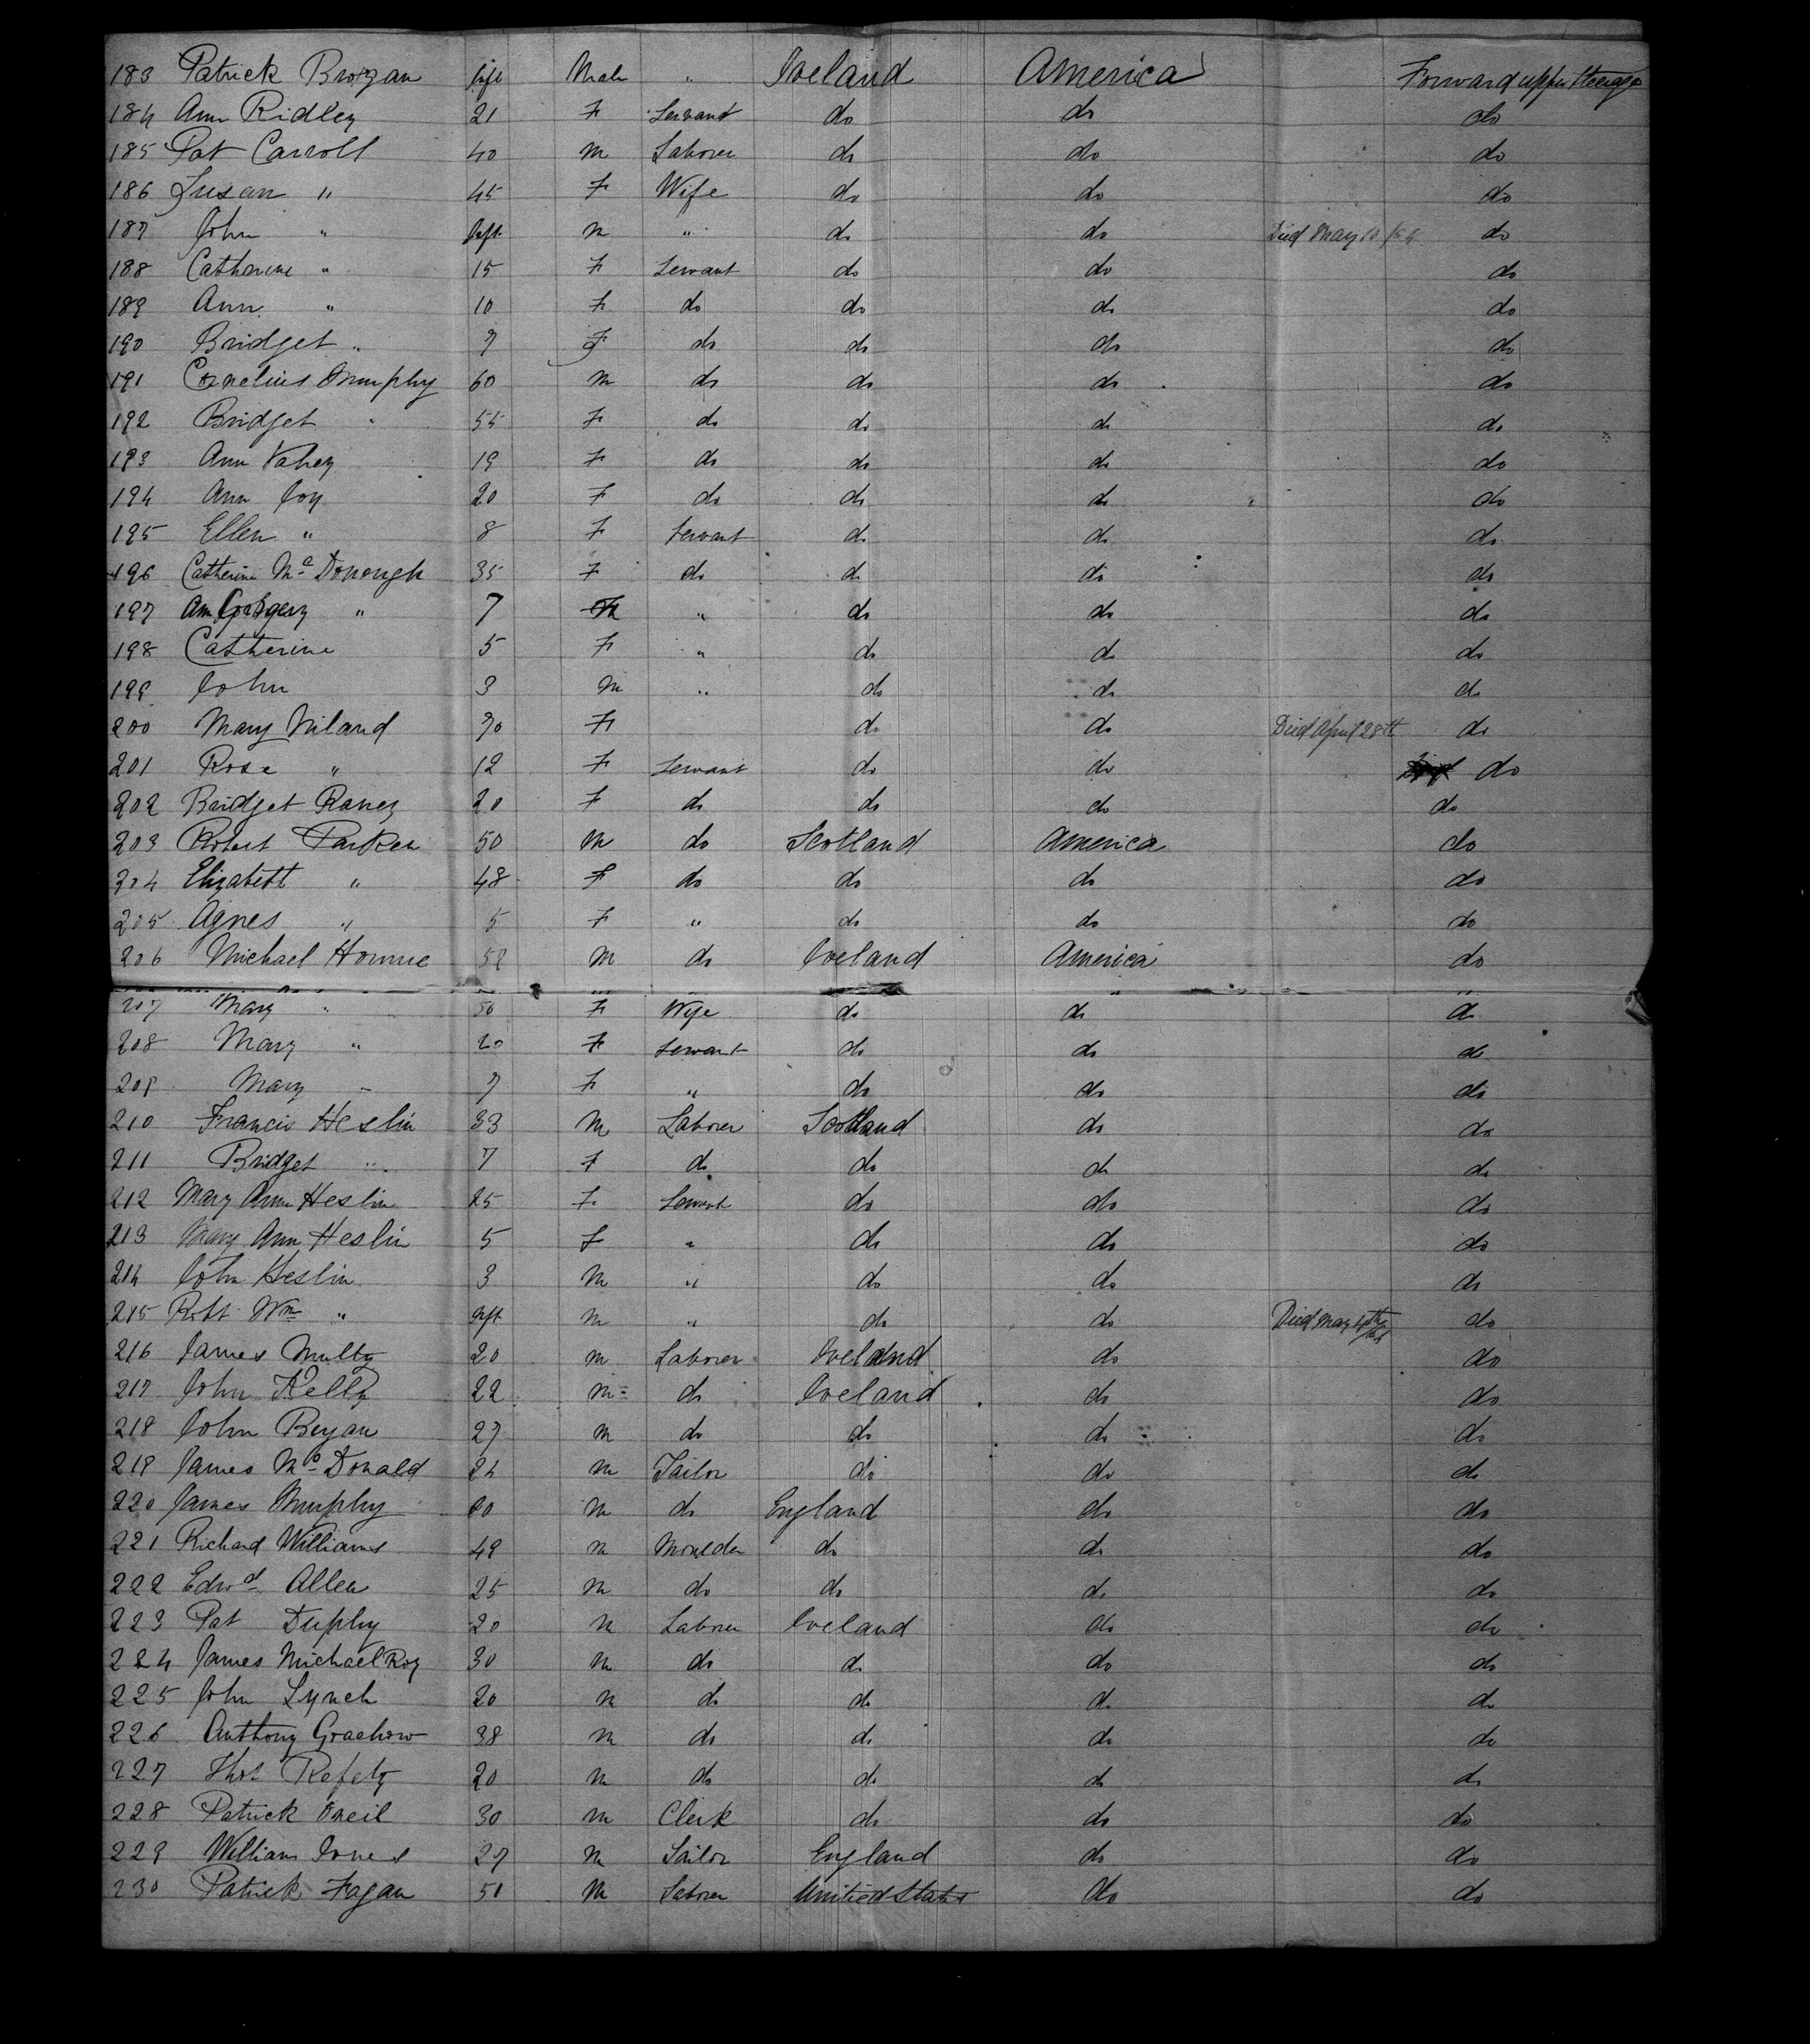 183 Patrick Brogan Inft Male " Ireland America Forward upper Steerage
184 Ann Ridley 21 F Servant do do do
185 Pat Carroll 40 M Laborer do do do
186 Susan " 45 F Wife do do do
187 John " Inft M " do do Died May 10 /64 do
188 Catherine " 15 F Servant do do do
189 Ann " 10 F do do do do
190 Bridget " 7 F do do do do
191 Cornelius Murphy 60 M do do do do
192 Bridget " 55 F do do do do
193 Ann Fahey 19 F do do do do
194 Ann Coy 20 F do do do do
195 Ellen " 8 F Servant do do do
196 Catherine McDonough 35 F do do do do
197 " 7 M " do do do
198 Catherine 5 F " do do do
199 John 3 M " do do do
200 Mary Niland 70 F do do Died April 28th do
201 Rose " 12 F Servant do do do
202 Bridget Raney 20 F do do do do
203 Robert Parker 50 M do Scotland America do
204 Elizabeth " 48 F do do do do
205 Agnes " 5 F " do do do
206 Michael Homme 52 M do Ireland America do
207 Mary " 50 F Wife do do do
208 Mary " 20 F Servant do do do
209 Mary " 7 F " do do do
210 Francis Heslin 33 M Laborer Scotland do do
211 Bridget " 7 F do do do do
212 Mary Ann Heslin 25 F Servant do do do
213 Mary Ann Heslin 5 F " do do do
214 John Heslin 3 M " do do do
215 Robt Wm " Inft M " do do Died May 4th /64 do
216 James Multy 20 M Laborer Ireland do do
217 John Kelly 22 M do Ireland do do
218 John Bryan 27 M do do do do
219 James McDonald 24 M Tailor do do do
220 James Murphy 60 M do England do do
221 Richard Williams 49 M Moulder do do do
222 Edwd Allen 25 M do do do do
223 Pat Duphy 20 M Laborer Ireland do do
224 James MichaelRoy 30 M do do do do
225 John Lynch 20 M do do do do
226 Anthony 38 M do do do do
227 Thos Refety 20 M do do do do
228 Patrick Oneil 30 M Clerk do do do
229 William Jones 27 M Sailor England do do
230 Patrick Fagan 50 M Laborer United States do do